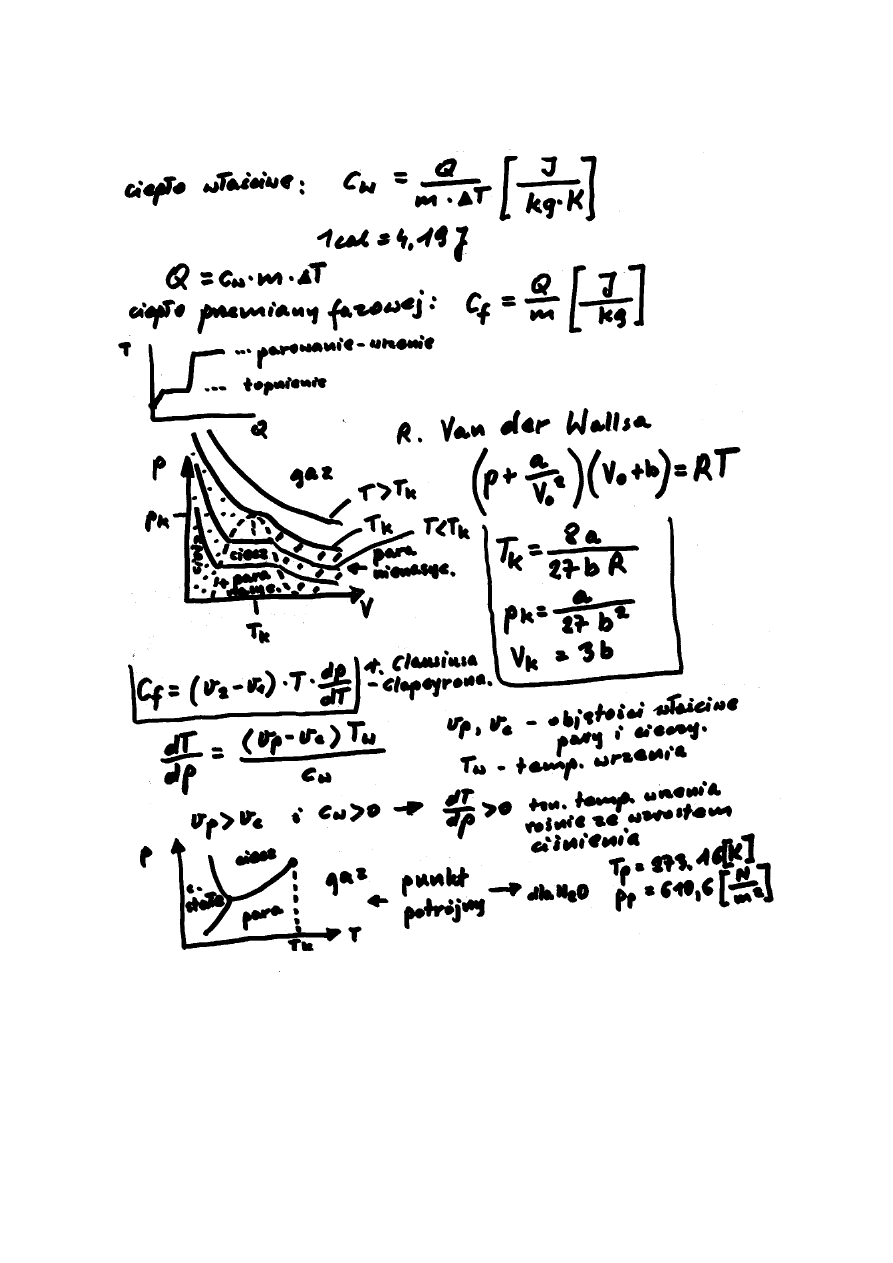 ciepło właściwe: Cw = Q / (m · ΔT) [J / (kg · K)]
1 cal = 4,19 J
Q = cw · m · ΔT
ciepło przemiany fazowej: Cf = Q / m [J / kg]
T
... parowanie - wrzenie
... topnienie
Q
R. Van der Wallsa
(p + a / V₀²)(V₀ + b) = RT
p
gaz
T > Tk
pk
Tk
T < Tk
ciecz
ciecz
para
nienasyc.
+ para
nasyc.
V
Tk
Tk = 8a / (27 b R)
pk = a / (27 b²)
Vk = 3b
Cf = (v₂ - v₁) · T · dp/dT
r. Clausiusa
- Clapeyrona.
dT/dp = (vp - vc) Tw / cw
vp, vc - objętości właściwe
pary i cieczy.
Tw - temp. wrzenia
vp > vc i cw > 0 → dT/dp > 0 tzn. temp. wrzenia
rośnie ze wzrostem
ciśnienia
p
ciecz
c.
stałe
para
gaz
Tk
T
← punkt
potrójny
→ dla H₂O
Tp = 273,16 [K]
pp = 610,6 [N / m²]